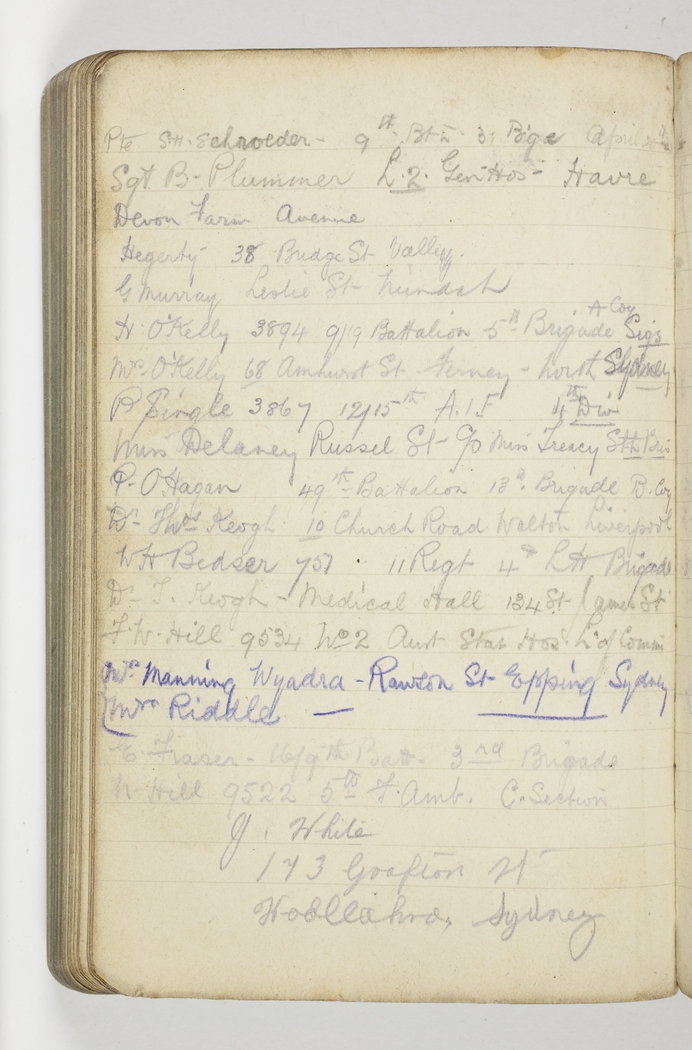 Pte S.H. Schroeder - 9th Btn 3 Bge April
Sgt B. Plummer L.2. Gen Hos - Havre
Devon Farm Avenue
Hegerty 38 Bridge St Valley.
G Murray Leslie St Nundah
A Coy
H. O'Kelly 3894 9/19 Battalion 5th Brigade Sigs
Mrs O'Kelly 68 Amhurst St. - North Sydney
P Single 3867 12/15th A.I.F 4th Div
Miss Delaney Russel St c/o Miss Treacy Sth Bris
P. O'Hagan 49th Battalion 13th Brigade D. Coy
Dr Thos Keogh 10 Church Road Walton Liverpool
W H Bedser 757 . 11 Regt 4th L H Brigade
Dr T. Keogh - Medical Hall 134 St James St
F. W. Hill 9534 No 2 Aust Stat Hos. L. of Comm
Mrs Manning Wyadra - Rawson St Epping Sydney
Mrs Riddle —
E Fraser - 16/9th Batt. 3rd Brigade
Hill 9522 5th F. Amb. C. Section
J. White
173 Grafton St
Woollahra, Sydney